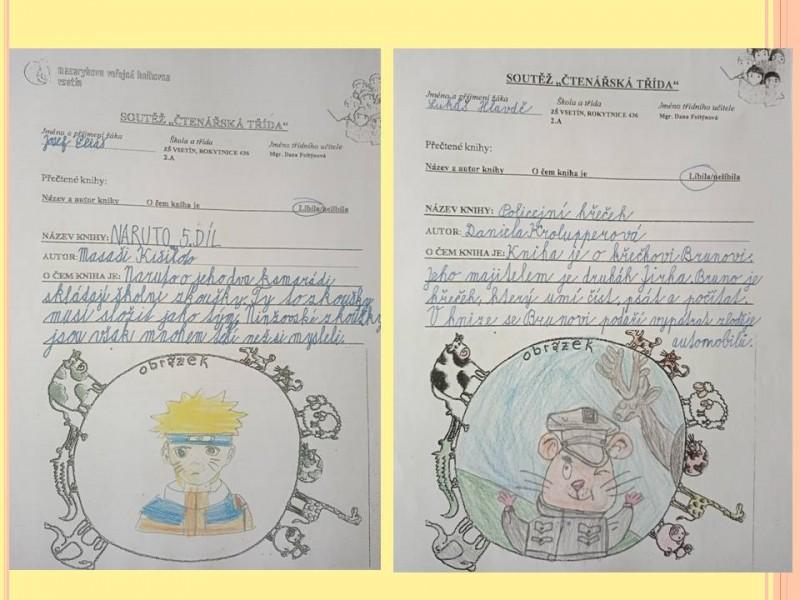 masarykova veřejná knihovna
vsetín
SOUTĚŽ „ČTENÁŘSKÁ TŘÍDA“
Jméno a příjmení žáka
Škola a třída
Jméno třídního učitele
Josef Eliáš
ZŠ VSETÍN, ROKYTNICE 436
Mgr. Dana Foltýnová
2.A
Přečtené knihy:
Název a autor knihy O čem kniha je Líbila/nelíbila
NÁZEV KNIHY: NARUTO 5. DÍL
AUTOR: Masaši Kišiko
O ČEM KNIHA JE: Naruto a jeho dva kamarádi
skládají školní zkoušky. Ty to zkoušky
musí složit jako tým. Ninžovské zkoušky
jsou však mnohem než si mysleli.
obrázek
SOUTĚŽ „ČTENÁŘSKÁ TŘÍDA“
Jméno a příjmení žáka
Škola a třída
Jméno třídního učitele
Lukáš Hlavdě
ZŠ VSETÍN, ROKYTNICE 436
Mgr. Dana Foltýnová
2.A
Přečtené knihy:
Název a autor knihy O čem kniha je Líbila/nelíbila
NÁZEV KNIHY: Policejní křeček
AUTOR: Daniela Krolupperová
O ČEM KNIHA JE: Kniha je o křečkovi Brunovi.
Jeho majitelem je druhák Jirka. Bruno je
křeček, který umí číst, psát a počítat.
V knize se Brunovi podaří vypátrat zloděje
automobilů.
obrázek